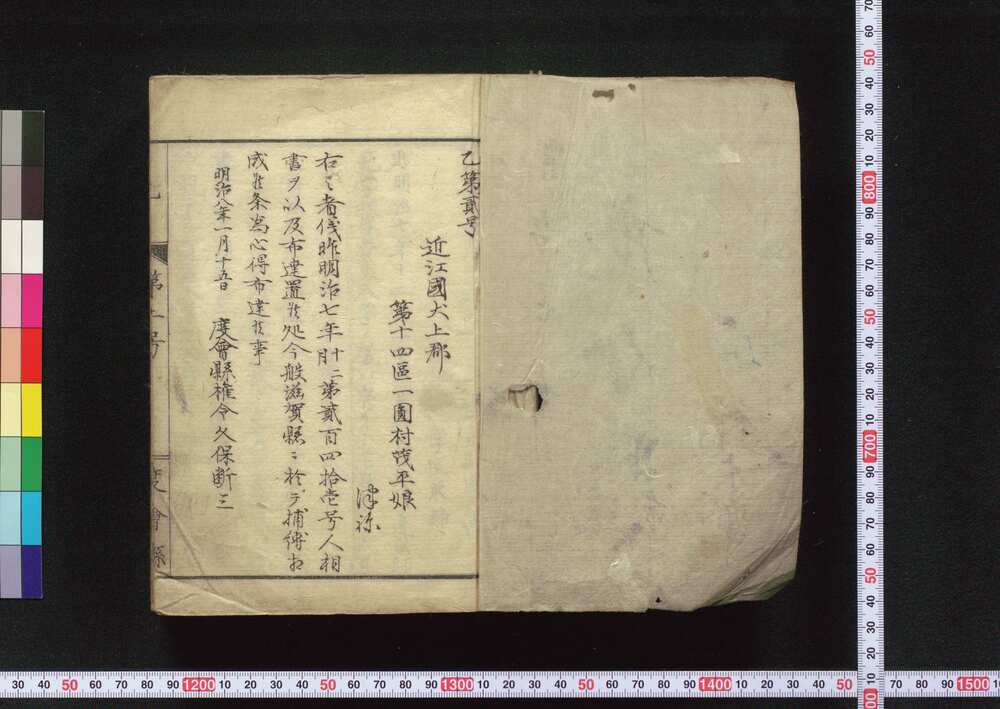 乙第貳号
近江國犬上郡
第十四區一圓村茂平娘
津祢
右之者儀昨明治七年十二月第貳百四拾壱号人相
書ヲ以及布達置候処今般滋賀縣ニ於テ捕縛相
成候条為心得布達候事
明治八年一月十五日 度會縣権令久保断三
第二号
度會縣